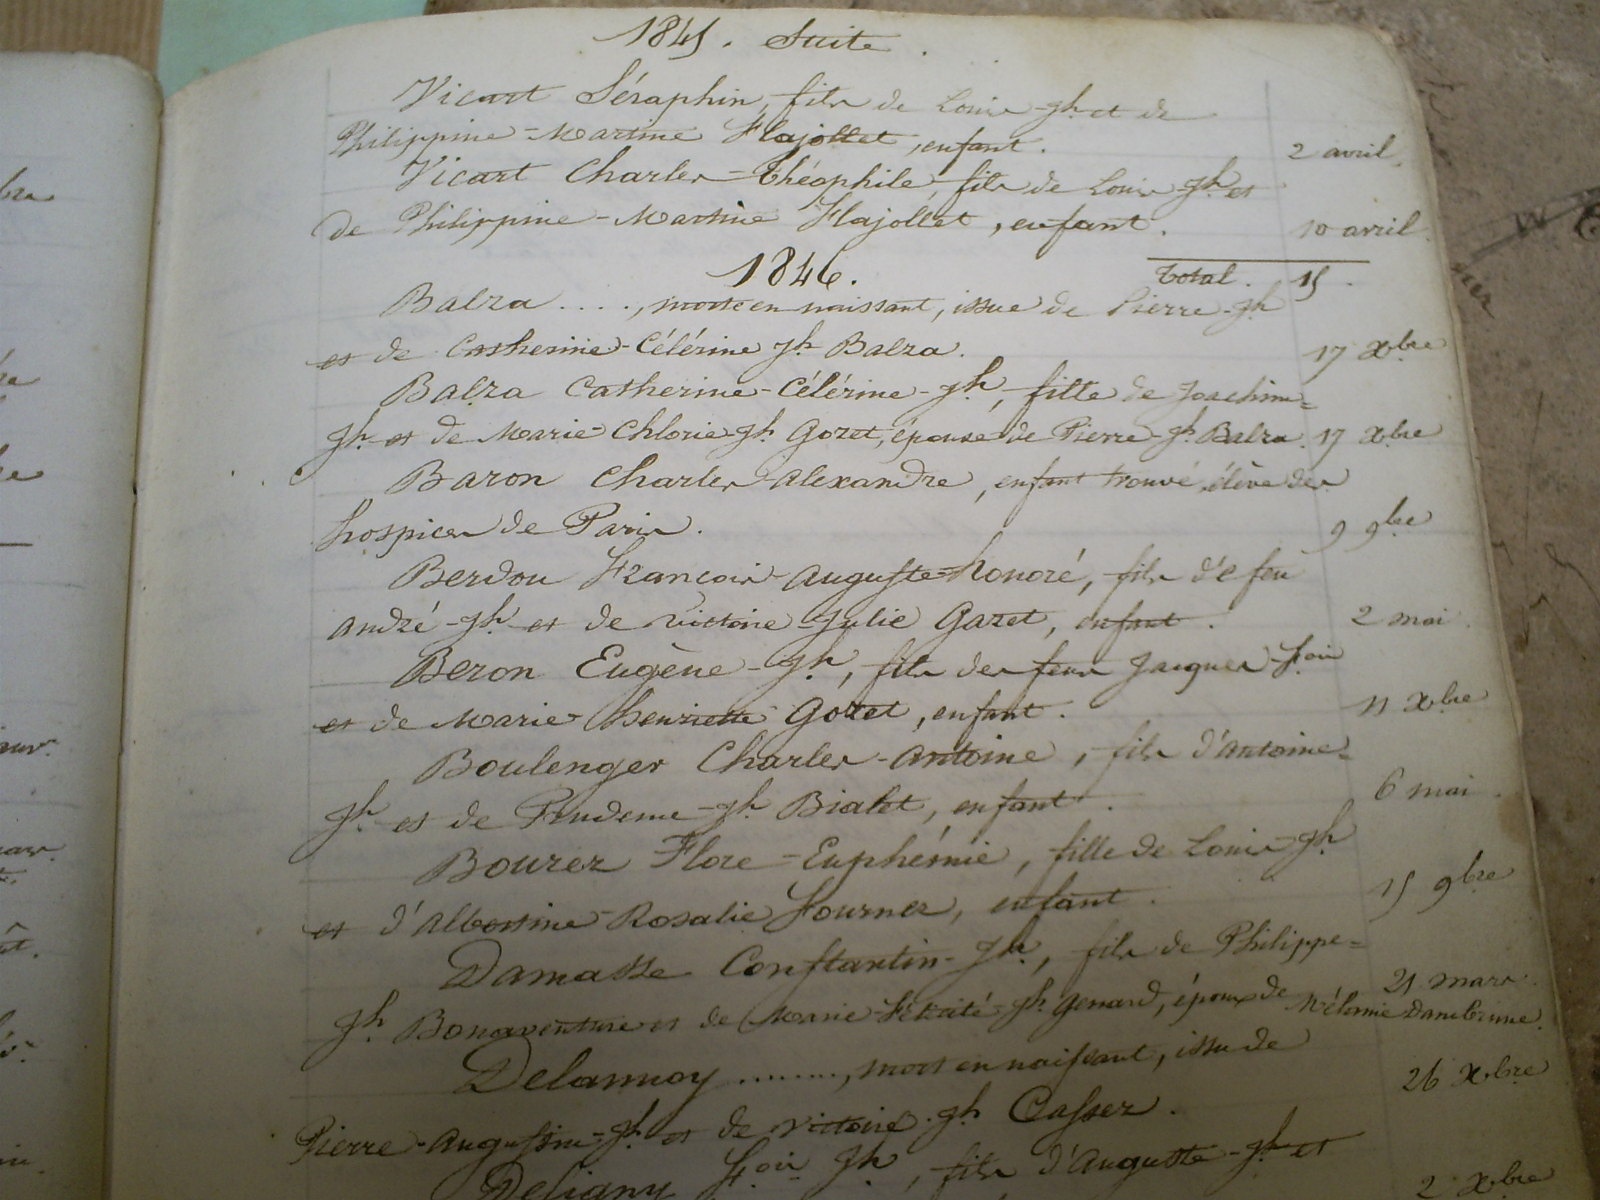 1845. Suite.
Vicart Séraphin, fils de Louis-Jh et de
Philippine-Martine Flajollet, enfant. 2 avril.
Vicart Charles-Théophile, fils de Louis-Jh et
de Philippine-Martine Flajollet, enfant. 10 avril.
Total. 15.
1846.
Balza ...., morte en naissant, issue de Pierre-Jh
et de Catherine-Célérine Jh Balza. 17 Xbre
Balza Catherine-Célérine-Jh, fille de Joachim=
Jh et de Marie-Chlorie-Jh Gozet, épouse de Pierre-Jh Balza. 17 Xbre
Baron Charles-Alexandre, enfant trouvé, élève des
hospices de Paris. 9 9bre
Berdou François-Auguste-Honoré, fils de feu
André-Jh et de Victoire-Julie Gazet, enfant. 2 mai.
Beron Eugène-Jh, fils des feus Jacques-Fois
et de Marie-henriette Gozet, enfant. 11 Xbre
Boulenger Charles-Antoine, fils d'Antoine=
Jh et de Prudence-Jh Bialet, enfant. 6 mai.
Bourez Flore-Euphémie, fille de Louis-Jh
et d'Albertine-Rosalie Fournez, enfant. 15 9bre
Damasse Constantin-Jh, fils de Philippe=
21 mars.
Jh Bonaventure et de Marie-Félicité-Jh Genard, époux de Mélanie Dambrinne.
Delannoy ........, mort en naissant, issu de
26 Xbre
Pierre-Augustin-Jh et de Victoire-Jh Casser.
Deligny Fois Jh, fils d'Auguste-Jh et
2 Xbre